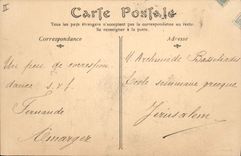 Carte Postale
Tous les pays étrangers n'acceptent pas la correspondance au recto
Se renseigner à la poste.
Correspondance
Adresse
Un peu de correspon
dance s.v.f
Fernande
M Archimède
École grecque
Jérusalem